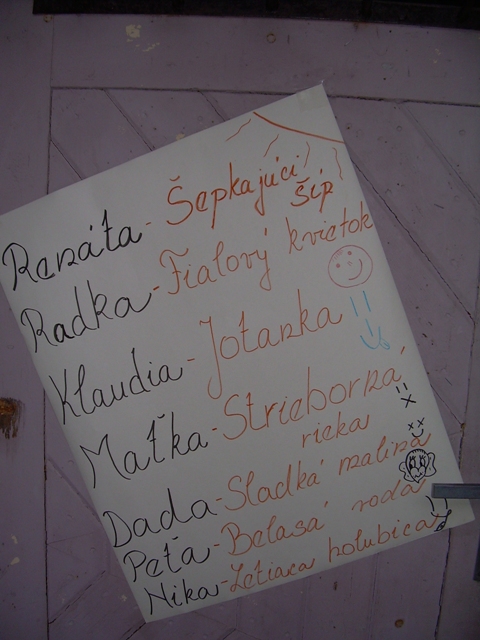 Renáta - Šepkajúci
šíp
Radka - Fialový kvietok
Klaudia - Jotanka
Maťka - Strieborná
rieka
Dada - Sladká malina
Peťa - Belasá voda
Nika - Letiaca holubica